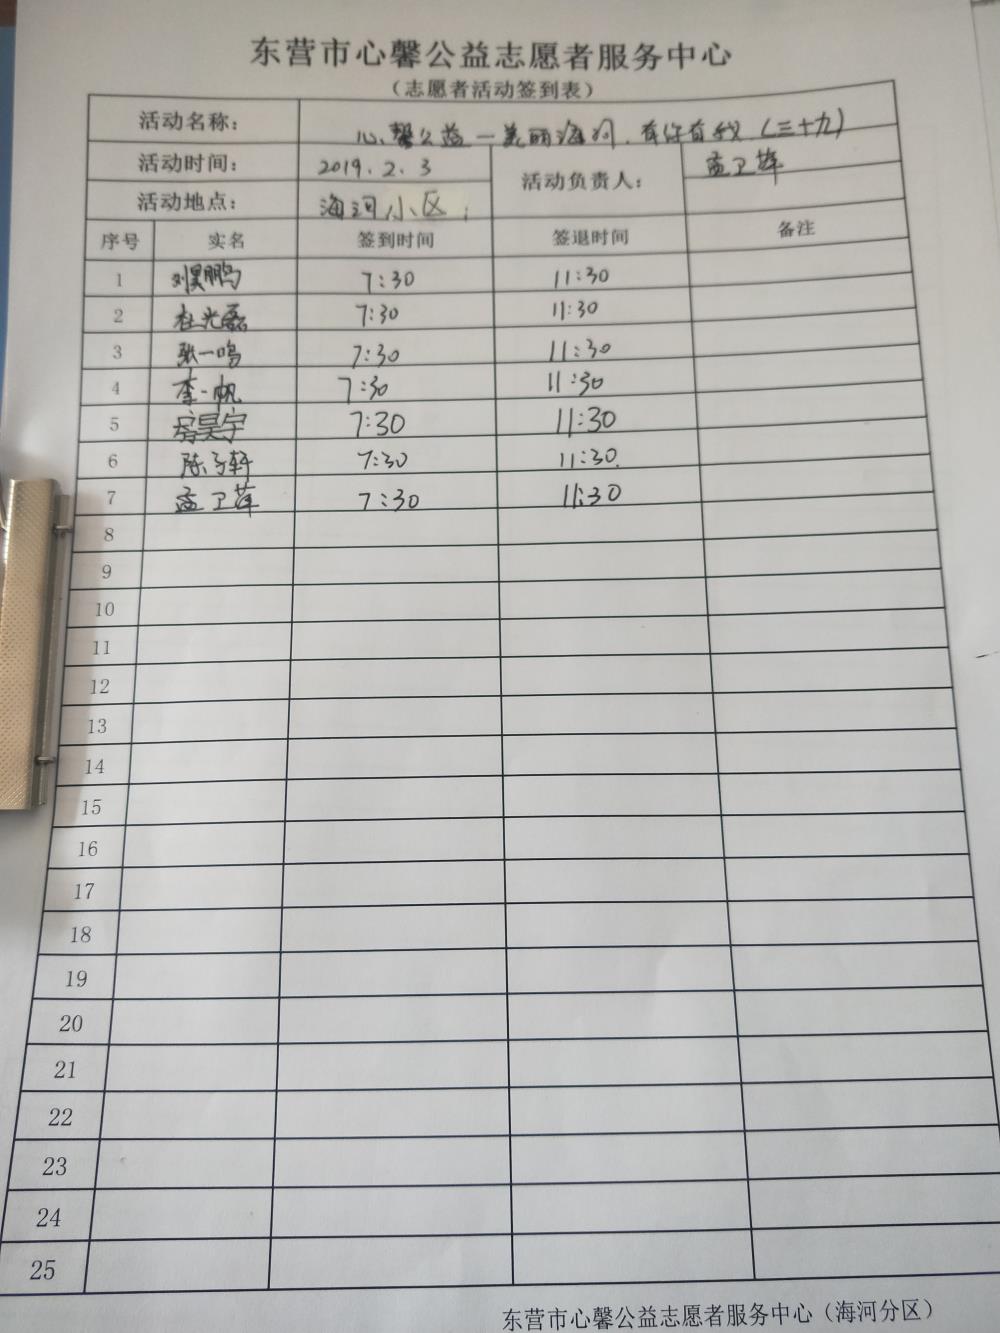 东营市心馨公益志愿者服务中心
（志愿者活动签到表）
活动名称： 心馨公益一美丽海河.有你有我（三十九）
活动时间： 2019.2.3 活动负责人： 孟卫萍
活动地点： 海河小区
序号 实名 签到时间 签退时间 备注
1 刘昊鹏 7:30 11:30
2 杜光磊 7:30 11:30
3 张一鸣 7:30 11:30
4 李一帆 7:30 11:30
5 昊宇 7:30 11:30
6 陈子轩 7:30 11:30
7 孟卫萍 7:30 11:30
8
9
10
11
12
13
14
15
16
17
18
19
20
21
22
23
24
25
东营市心馨公益志愿者服务中心（海河分区）